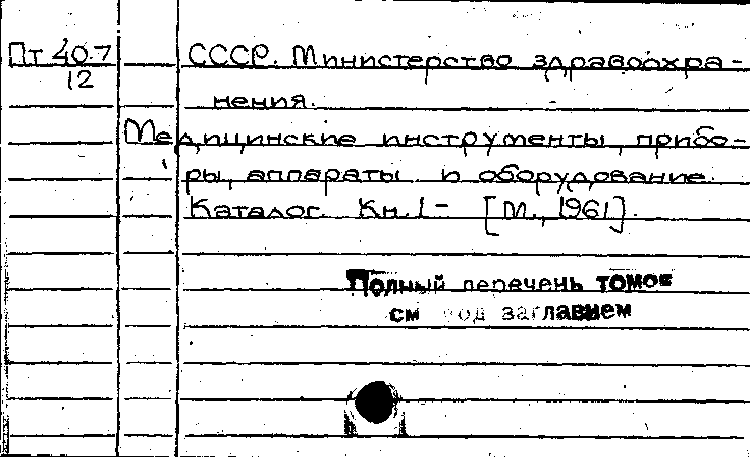 Пт 40.7 СССР. Министерство здравоохра-
12
нения.
Медицинские инструменты, прибо-
ры, аппараты и оборудование.
Каталог. Кн. 1- [М., 1961].
Полный перечень томов
см под заглавием